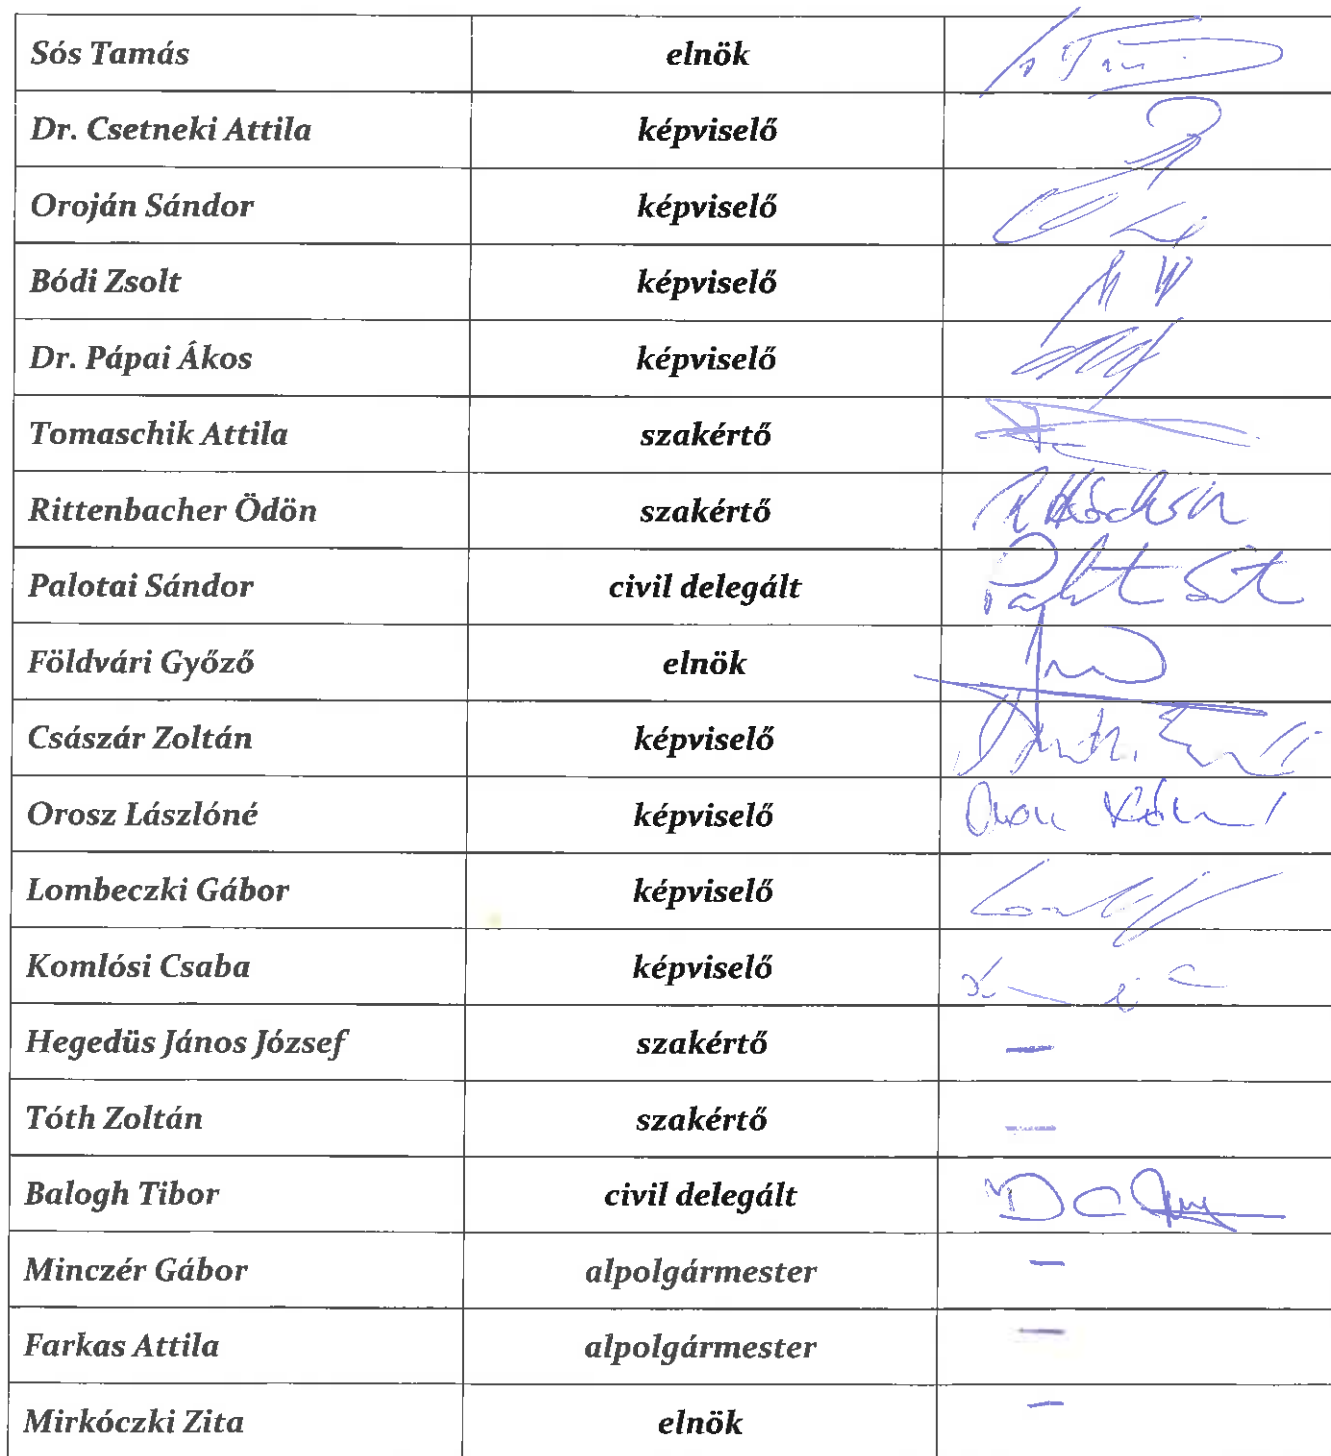 Sós Tamás elnök
Dr. Csetneki Attila képviselő
Oroján Sándor képviselő
Bódi Zsolt képviselő
Dr. Pápai Ákos képviselő
Tomaschik Attila szakértő
Rittenbacher Ödön szakértő
Palotai Sándor civil delegált
Földvári Győző elnök
Császár Zoltán képviselő
Orosz Lászlóné képviselő
Lombeczki Gábor képviselő
Komlósi Csaba képviselő
Hegedüs János József szakértő —
Tóth Zoltán szakértő —
Balogh Tibor civil delegált
Minczér Gábor alpolgármester —
Farkas Attila alpolgármester —
Mirkóczki Zita elnök —